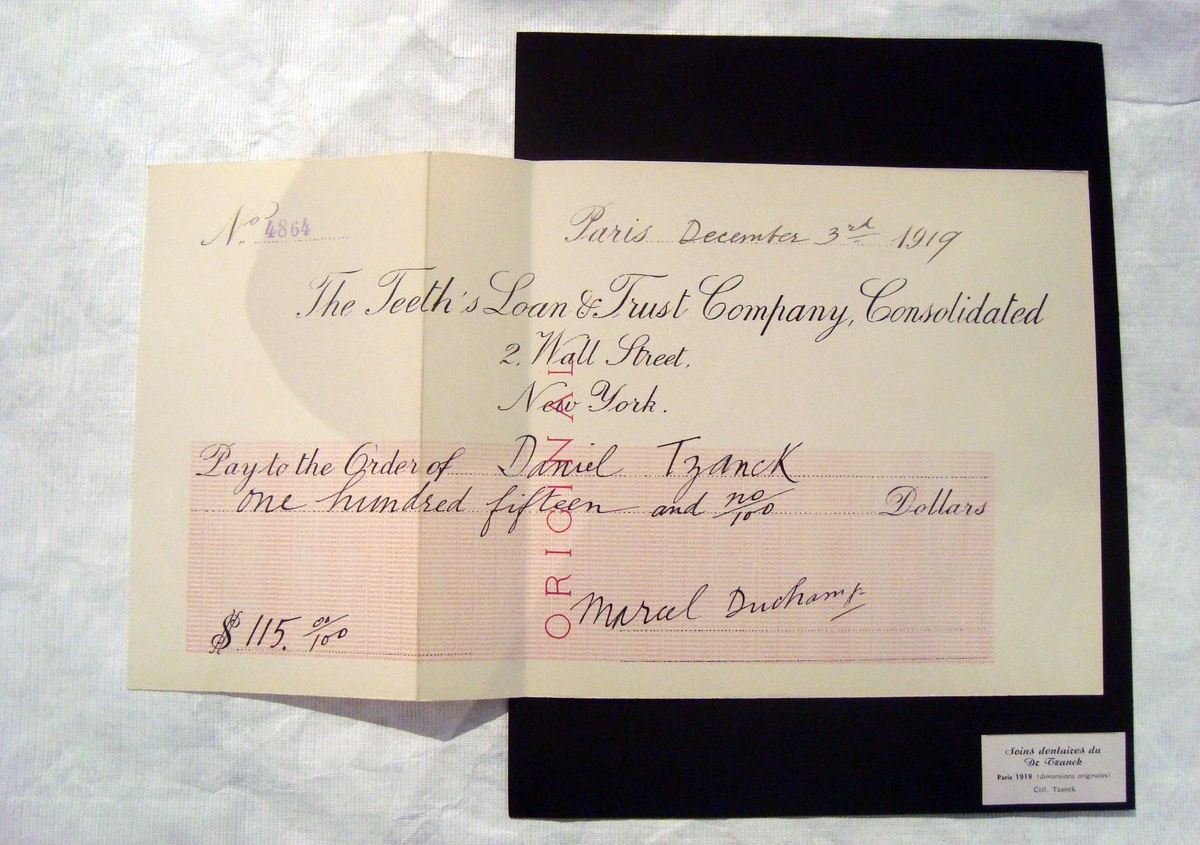 No. 4864
Paris December 3rd 1919
The Teeth's Loan & Trust Company, Consolidated
2. Wall Street.
New York.
Pay to the Order of Daniel Tzanck
one hundred fifteen and no/100 Dollars
ORIGINAL
Marcel Duchamp
$ 115. 00/100
Soins dentaires du
Dr Tzanck
Paris 1919 (dimensions originales)
Coll. Tzanck